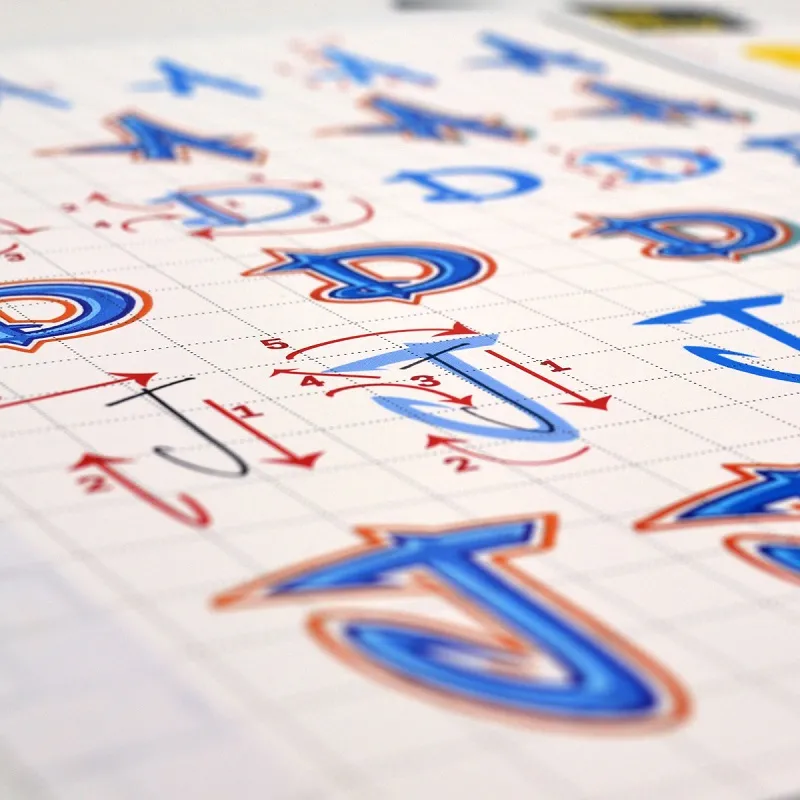 A A A
A A A
D D D
D D D
J 1 2 J 5 4 3 1 2 J
J